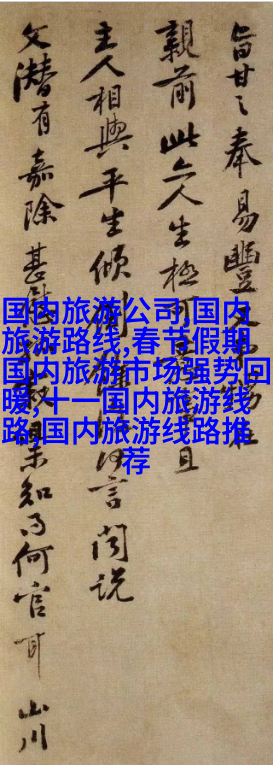 旨甘之奉易豐
親前此亦人生極可喜事且
主人相與平生傾倒何言聞説
文潜有嘉除甚慰知何官耶山川
国内旅游公司,国内
旅游路线,春节假期
国内旅游市场强势回
暖,十一国内旅游线
路,国内旅游线路推
荐